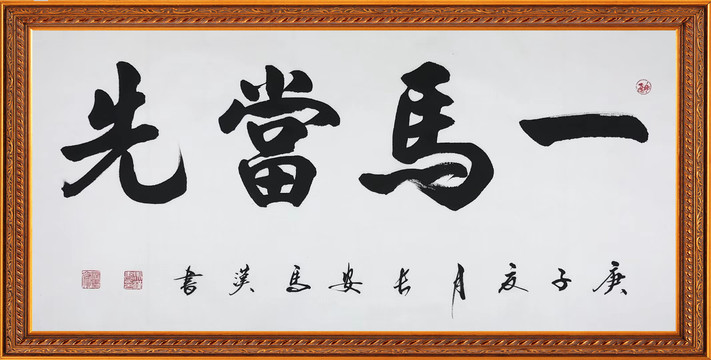 一馬當先
庚子夏月長安馬漢書